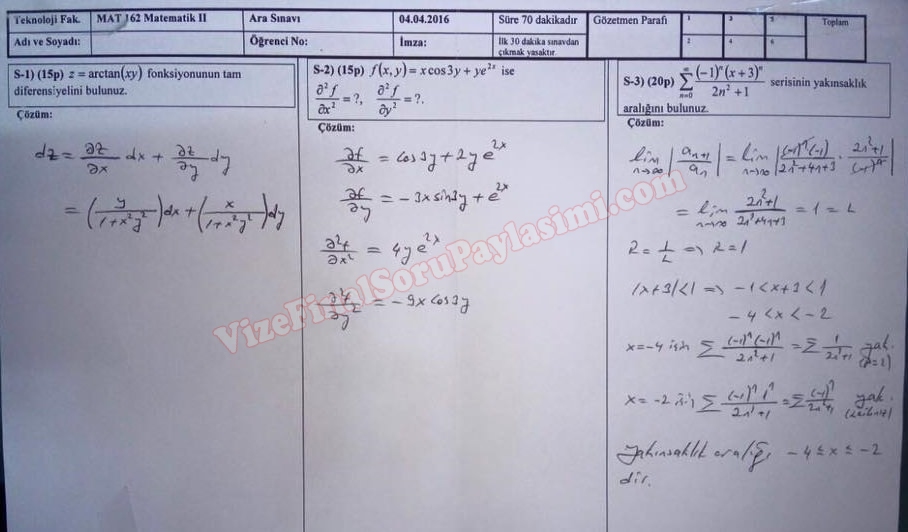 Teknoloji Fak. MAT 162 Matematik II Ara Sınavı 04.04.2016 Süre 70 dakikadır Gözetmen Parafı 1 3 5 Toplam
Adı ve Soyadı: Öğrenci No: İmza: İlk 30 dakika sınavdan çıkmak yasaktır. 2 4 6
S-1) (15p) z = arctan(xy) fonksiyonunun tam
diferensiyelini bulunuz.
Çözüm:
dz = ∂z/∂x dx + ∂z/∂y dy
= (y/(1+x²y²))dx + (x/(1+x²y²))dy
S-2) (15p) f(x, y) = x cos 3y + ye^(2x) ise
∂²f/∂x² = ?, ∂²f/∂y² = ?.
Çözüm:
∂f/∂x = cos3y + 2ye^(2x)
∂f/∂y = -3x sin3y + e^(2x)
∂²f/∂x² = 4ye^(2x)
∂²f/∂y² = -9x cos3y
S-3) (20p) ∑_(n=0)^∞ (-1)^n (x+3)^n / (2n²+1) serisinin yakınsaklık
aralığını bulunuz.
Çözüm:
lim_(n→∞) |a_(n+1)/a_n| = lim_(n→∞) |(-1)^n(-1)/(2n²+4n+3) · (2n²+1)/(-1)^n|
= lim_(n→∞) (2n²+1)/(2n²+4n+3) = 1 = L
R = 1/L ⇒ R = 1
|x+3| < 1 ⇒ -1 < x+3 < 1
-4 < x < -2
x = -4 için ∑ (-1)^n(-1)^n/(2n²+1) = ∑ 1/(2n²+1) yak.
(p=2)
x = -2 için ∑ (-1)^n 1^n/(2n²+1) = ∑ (-1)^n/(2n²+1) yak.
(Leibnitz)
Yakınsaklık aralığı -4 ≤ x ≤ -2
dir.
VizeFinalSoruPaylasimi.com